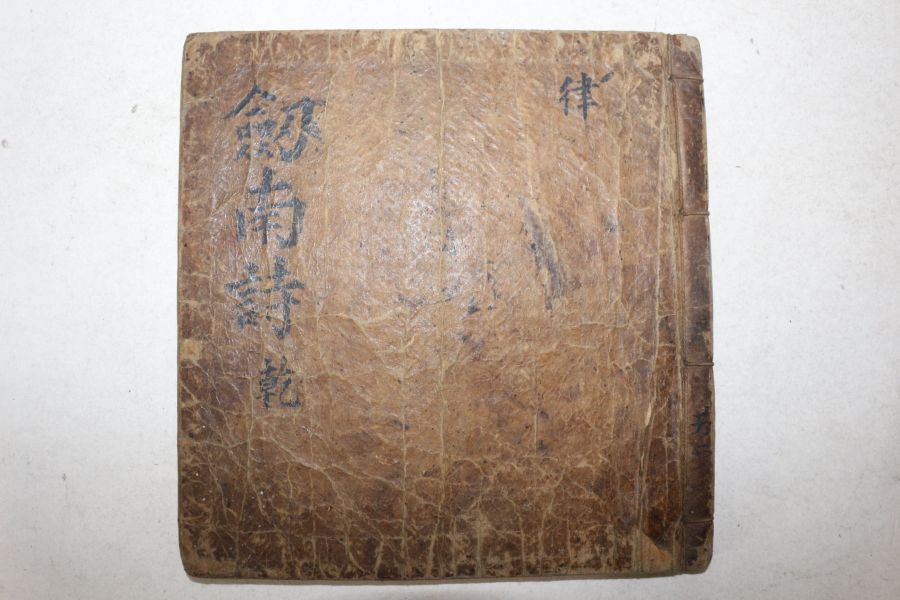 律
劒南詩 乾